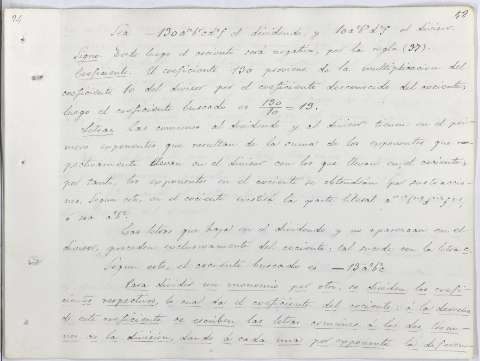 24
48
Sea −130 el dividendo, y 10 el divisor.
Signo. Desde luego el cociente será negativo, por la regla (37).
Coeficiente. El coeficiente 130 proviene de la multiplicacion del
coeficiente 10 del divisor por el coeficiente desconocido del cociente;
luego el coeficiente buscado es 130/10 = 13.
Letras. Las comunes al dividendo y al divisor tienen en el pri-
mero exponentes que resultan de la suma de los exponentes que res-
pectivamente llevan en el divisor con los que llevan en el cociente;
por tanto, los exponentes en el cociente se obtendrán por sustraccio-
nes, segun esto, en el cociente existirá la parte literal
ó sea
Las letras que haya en el dividendo y no aparezcan en el
divisor, proceden exclusivamente del cociente; tal sucede con la letra c.
Segun esto, el cociente buscado es −13
Para dividir un monomio por otro, se dividen los coefi-
cientes respectivos, lo cual da el coeficiente del cociente; á la derecha
de este coeficiente se escriben las letras comunes á los dos térmi-
nos de la division, dando á cada una por exponente la diferen-